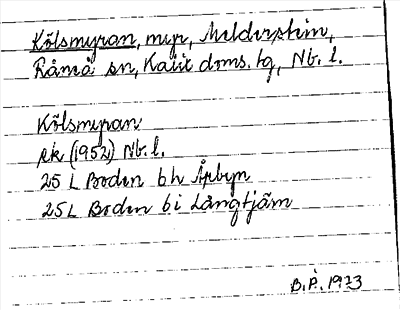 Kölsmyran, myr, Melderstein,
Råneå sn, Kalix doms. tg, Nb. l.
Kölsmyran
ek (1952) Nb. l.
25 L Boden bh Åkbyn
25 L Boden bi Långtjärn
B. P. 1973